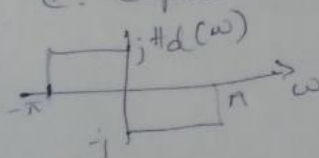 j Hd(ω)
-π
π
ω
-j